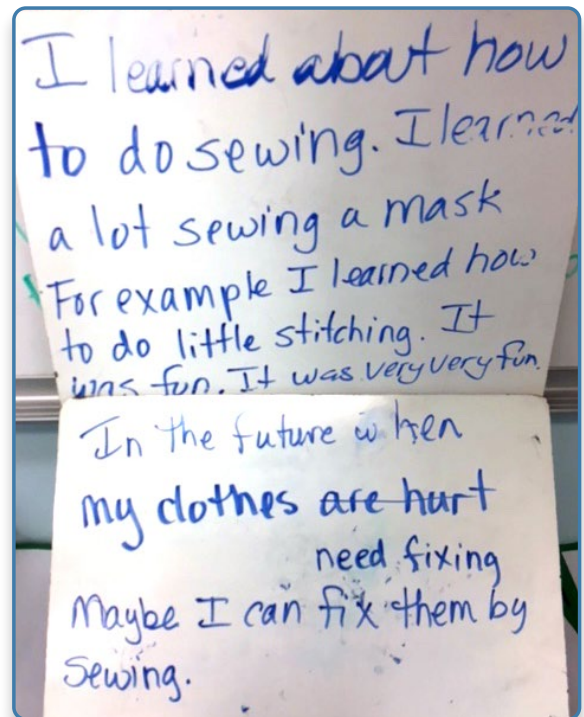 I learned about how
to do sewing. I learned
a lot sewing a mask
For example I learned how
to do little stitching. It
was fun. It was very very fun.
In the future when
my clothes are hurt
need fixing
Maybe I can fix them by
sewing.